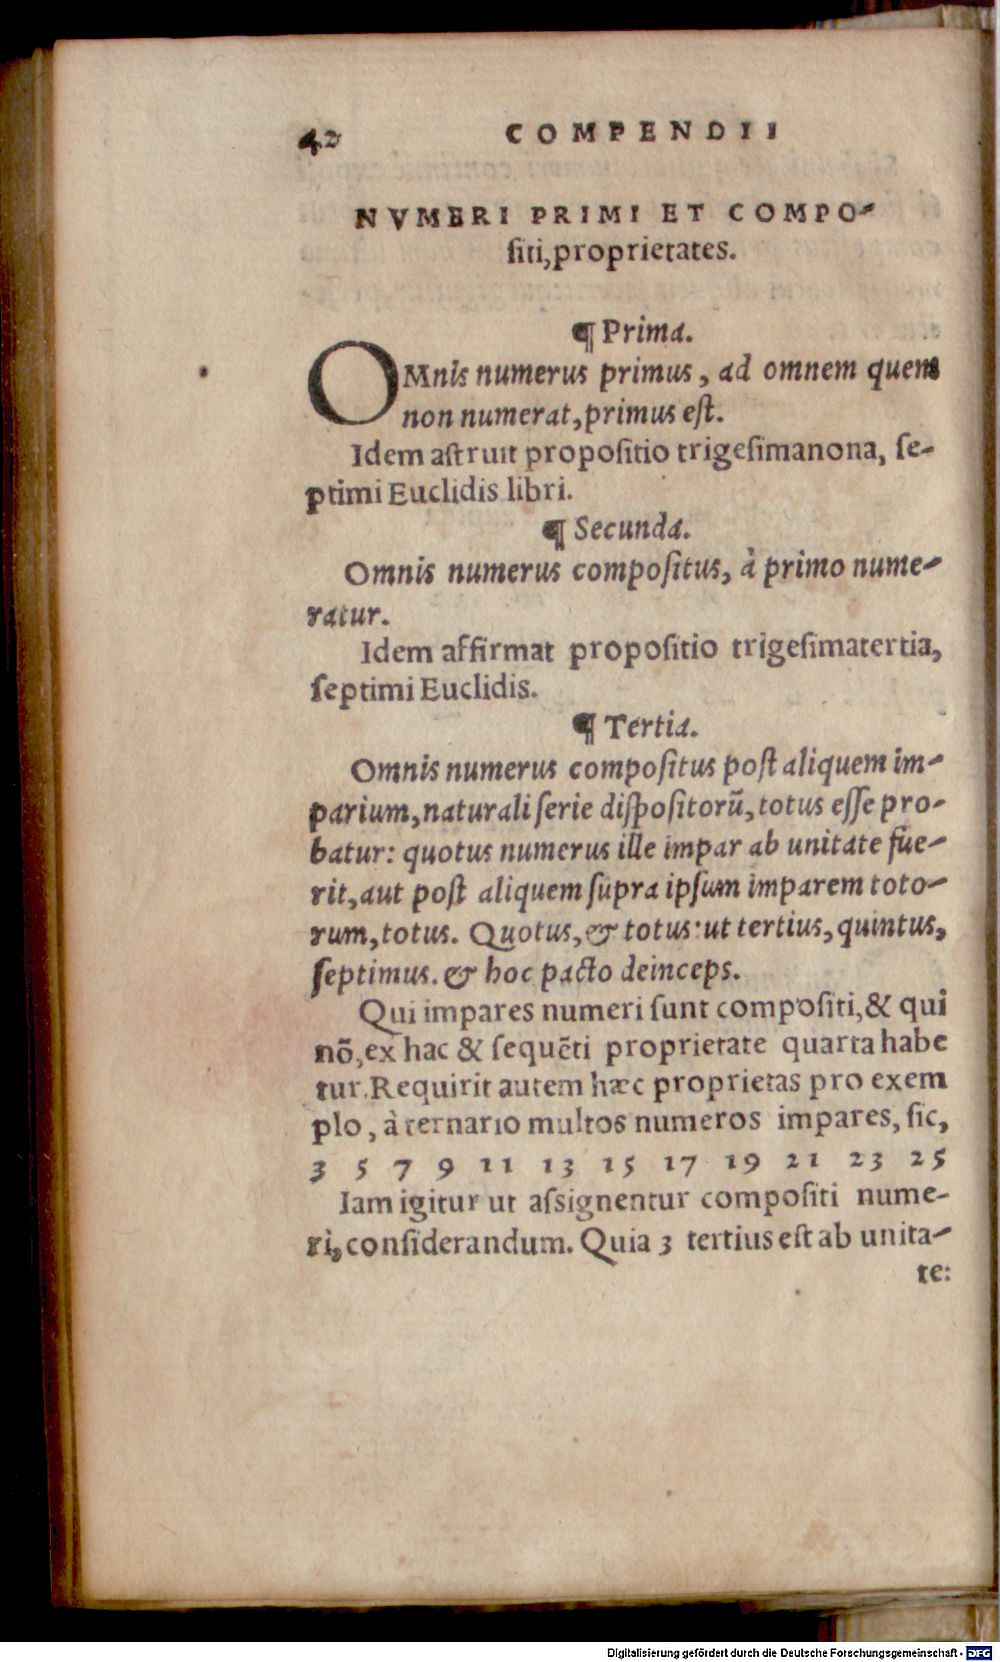 42 COMPENDII
NVMERI PRIMI ET COMPO-
siti, proprietates.
¶ Prima.
OMnis numerus primus, ad omnem quem
non numerat, primus est.
Idem astruit propositio trigesimanona, se-
ptimi Euclidis libri.
¶ Secunda.
Omnis numerus compositus, à primo nume-
ratur.
Idem affirmat propositio trigesimatertia,
septimi Euclidis.
¶ Tertia.
Omnis numerus compositus post aliquem im-
parium, naturali serie dispositorū, totus esse pro-
batur: quotus numerus ille impar ab unitate fue-
rit, aut post aliquem supra ipsum imparem toto-
rum, totus. Quotus, & totus: ut tertius, quintus,
septimus. & hoc pacto deinceps.
Qui impares numeri sunt compositi, & qui
nō, ex hac & sequēti proprietate quarta habe
tur. Requirit autem hæc proprietas pro exem
plo, à ternario multos numeros impares, sic,
3 5 7 9 11 13 15 17 19 21 23 25
Iam igitur ut assignentur compositi nume-
ri, considerandum. Quia 3 tertius est ab unita-
te:
Digitalisierung gefördert durch die Deutsche Forschungsgemeinschaft - DFG